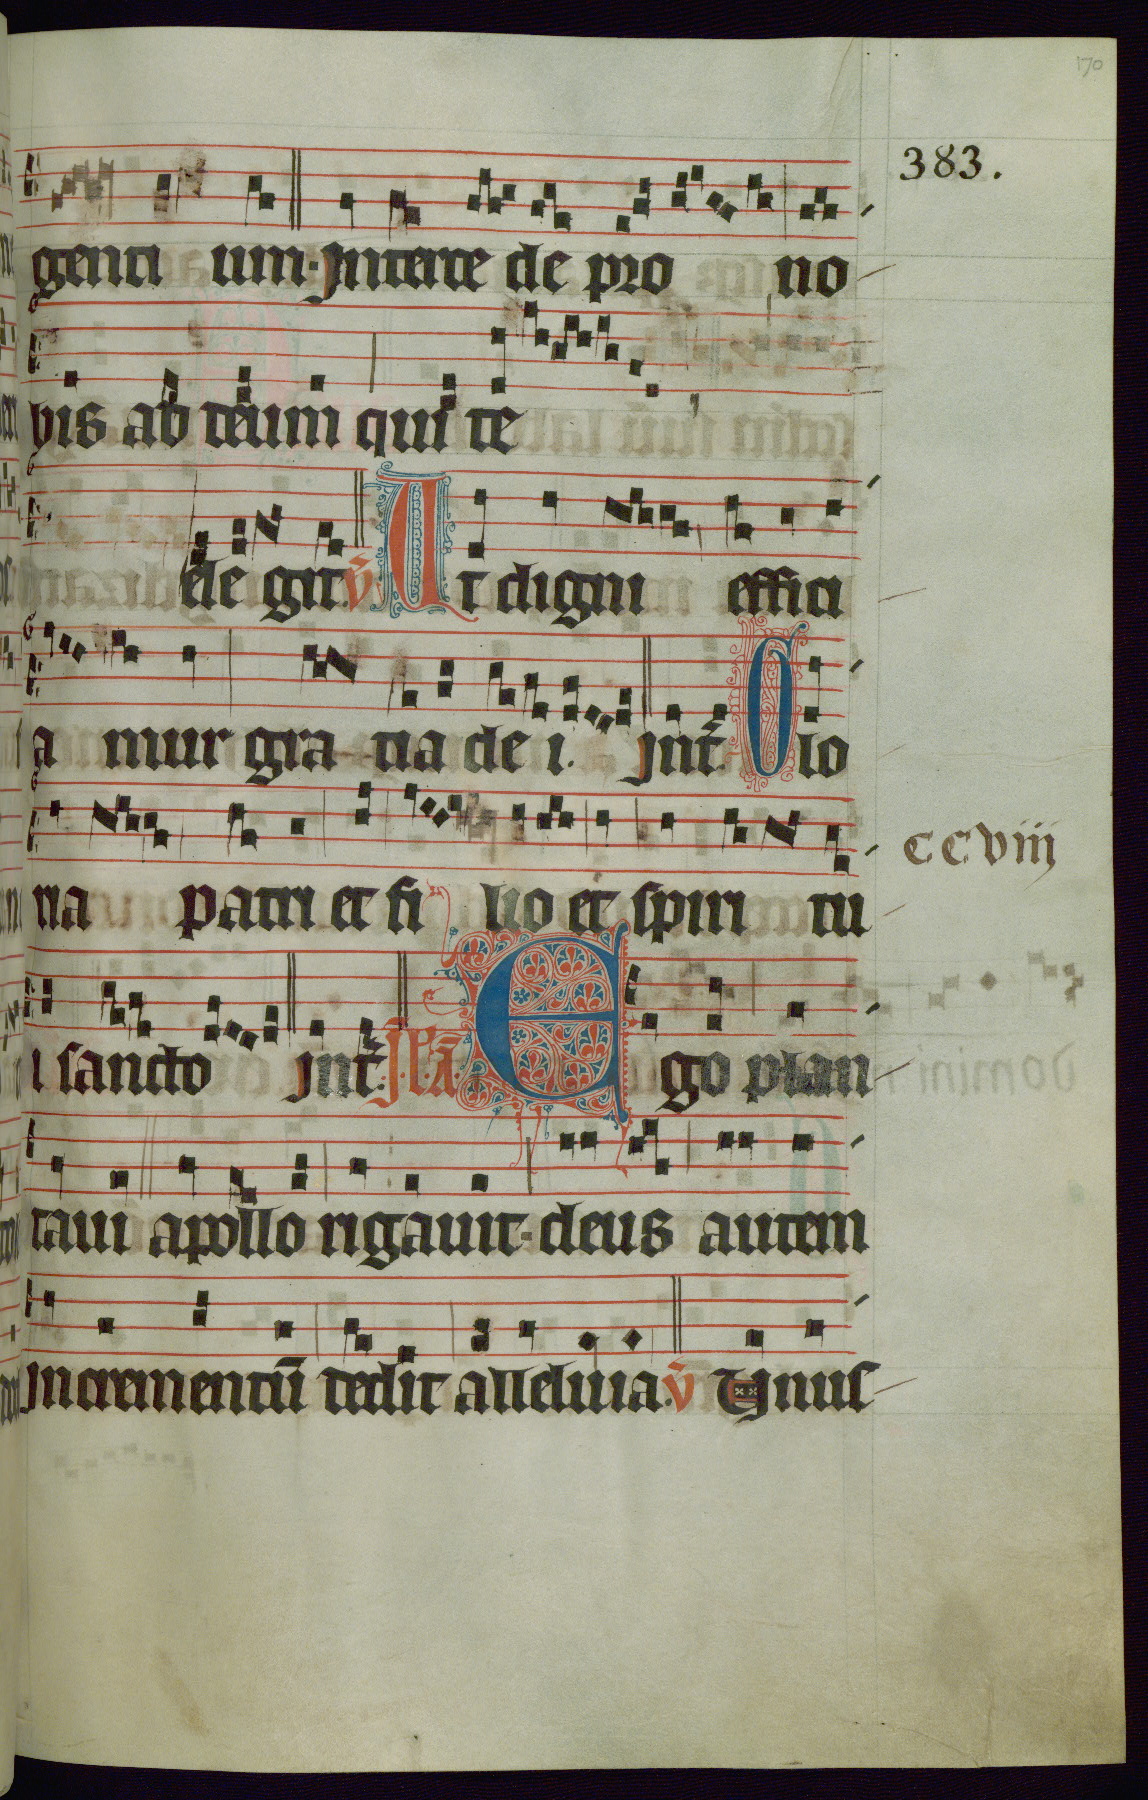 170
383.
genti um. Interce de pro no
bis ad deum qui te
ele git v̄ Ut digni effici
a mur gra tia de i. Int̄. Glo
CCviii
ria patri et fi lio et spiri tu
i sancto Int̄. Ego plan
taui apollo rigauit deus autem
Incrementū dedit alleluia. v̄ Unus